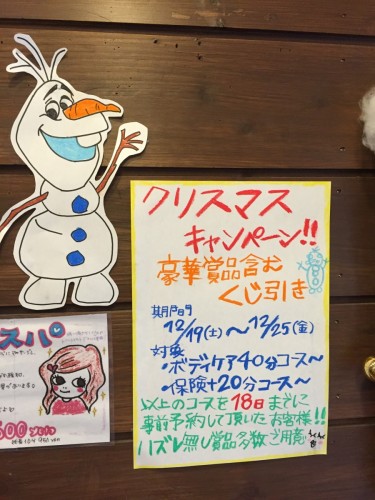 クリスマス
キャンペーン!!
豪華賞品含む
くじ引き
期間
12/19(土)〜12/25(金)
対象
・ボディケア40分コース〜
・保険+20分コース〜
以上のコースを18日までに
事前予約して頂いたお客様!!
ハズレ無し賞品多数ご用意
スパ